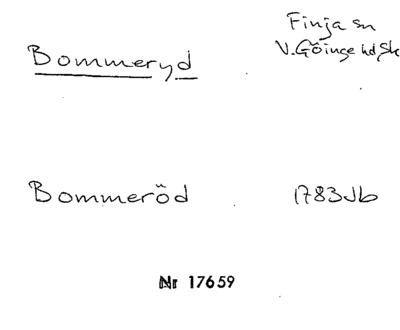 Finja sn
Bommeryd V. Göinge hd Sk
Bommeröd 1783 Jb
Nr 17659